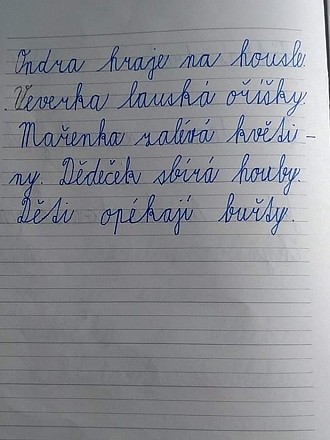 Ondra hraje na housle.
Veverka lauská oříšky.
Mařenka zalívá květi-
ny. Dědeček sbírá houby.
Děti opékají buřty.